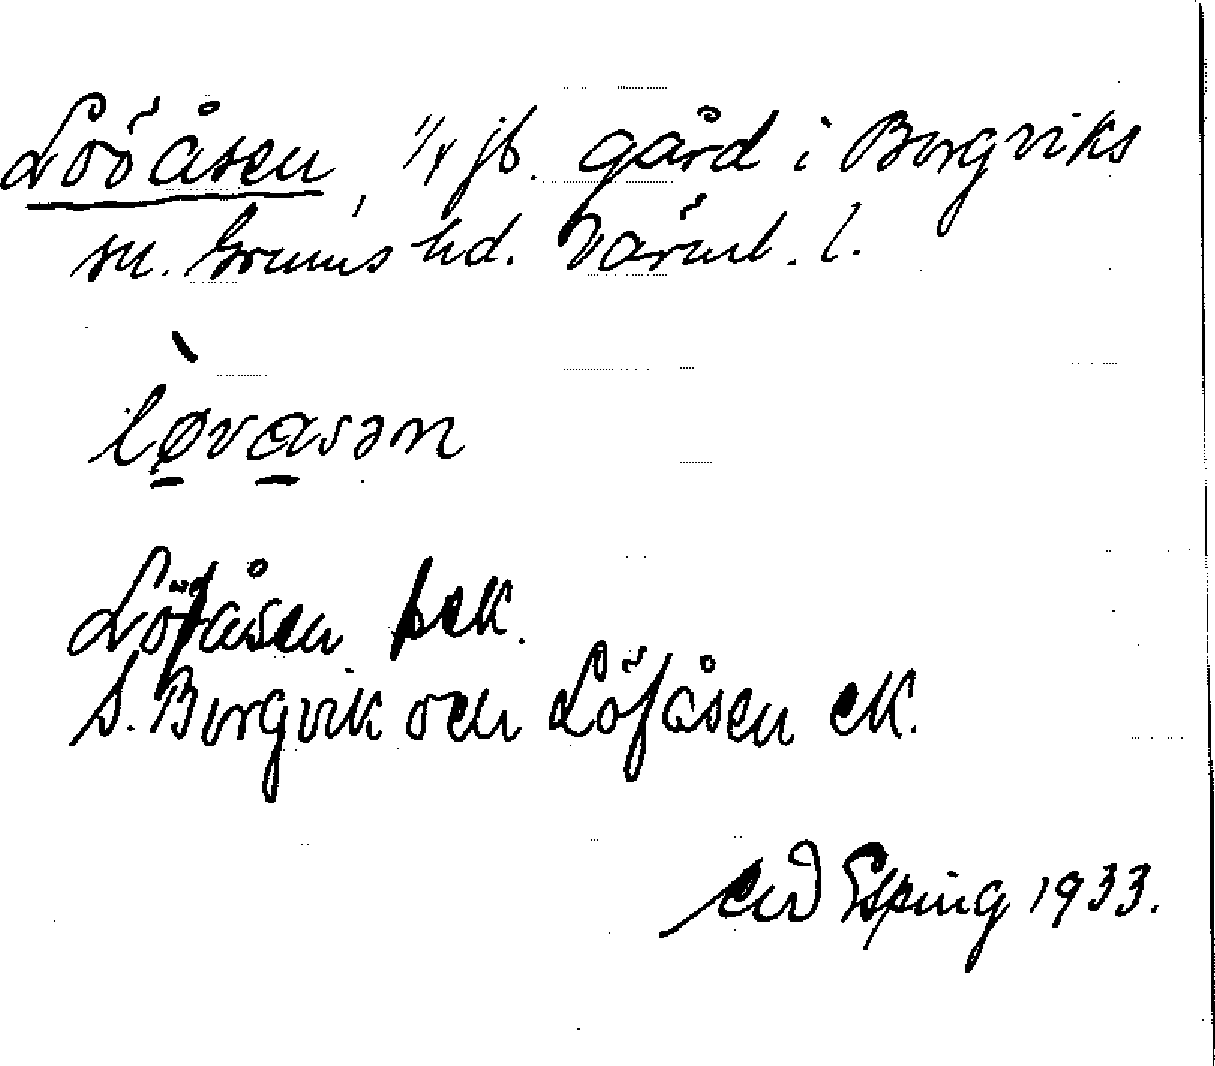 Lööåsen, 1/4 jb. gård i Borgviks
sn. Grums hd. Värml. l.
lø̱va̱sən
Löfåsen jbek.
S. Borgvik och Löfåsen ek.
Esping 1933.